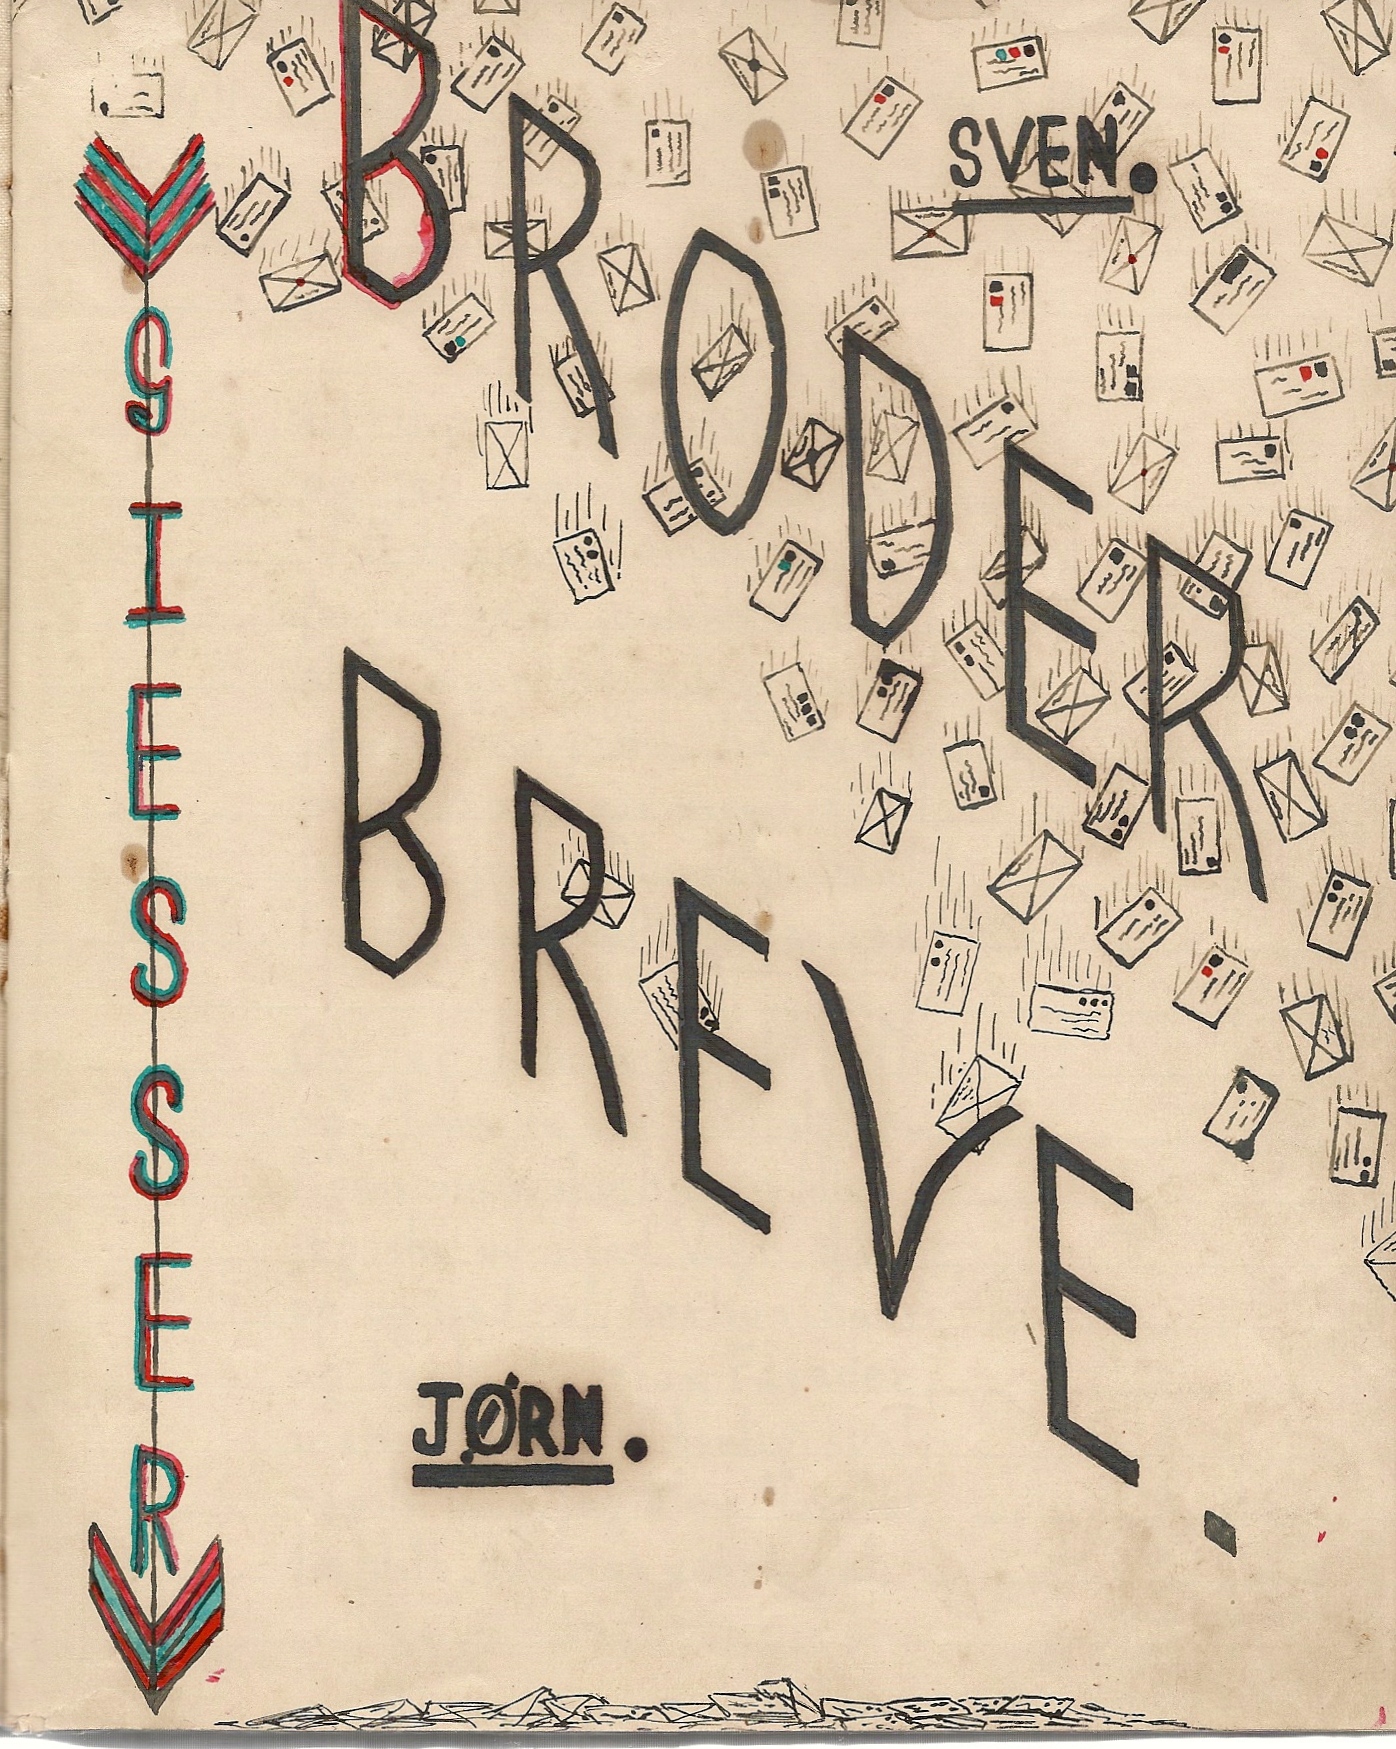 SVEN.
BRODER
BREVE.
JØRN.
GIESSER